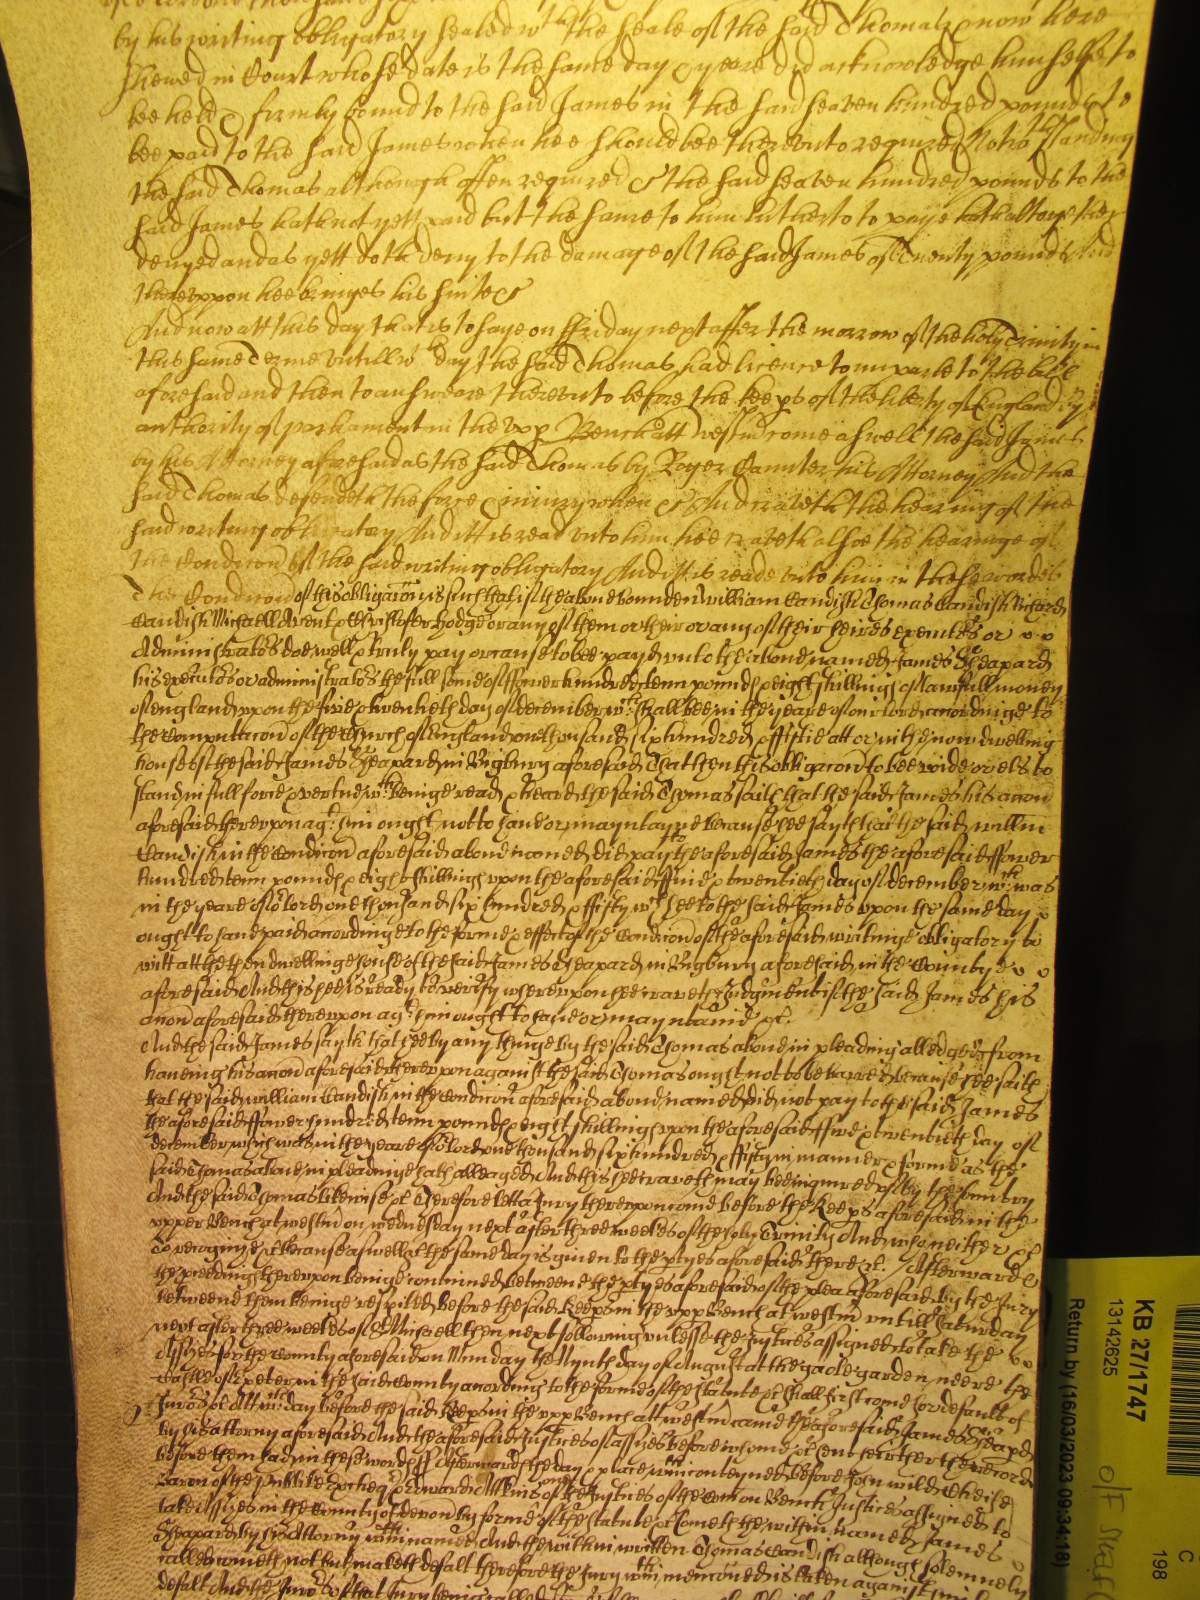 by his writing obligatory sealed wth the seale of the said Thomas & now here
shewed in Court whose date is the same day & yeare did acknowledge himselfe to
bee held & firmely bound to the said James in the said seaven hundred pounds to
bee paid to the said James when hee should bee thereunto required Notwthstanding
the said Thomas although often required &c the said seaven hundred pounds to the
said James hath not yett paid but the same to him hitherto to paye hath altogether
denyed and as yett doth deny to the damage of the said James of Twenty pounds And
thereuppon hee bringes his suite &c
And now att this day that is to saye on Friday next after the morrow of the holy Trinity in
this same Terme untill wch day the said Thomas had licence to imparle to the bill
aforesaid and then to answeare thereunto before the keeps of the liberty of England by
authority of parliament in the upp Bench att Westm come aswell the said James
by his Attorney aforesaid as the said Thomas by Roger Cannter his Attorney And the
said Thomas defendeth the force & iniury when &c And craveth the hearing of the
said writing obligatory And itt is read unto him hee craveth alsoe the hearinge of
the Condicon of the said writing obligatory And itt is reade unto him in these wordes
The Condicon of this obligacon is such that if the above bounden William Candish Thomas Candish Richard
Candish Michaell Avent & Christofer Hodge or any of them or their or any of their heires executors or
Administrators doe well & truly pay or cause to bee payd unto the above named James Sheapard
his executors or administrators the full some of ffower hundred tenn pounds & eight shillings of lawfull money
of England uppon the five & twentieth day of december wch shall bee in the yeare of our lord accordinge to
the computacon of the Church of England one thousand six hundred & fiftie att or in the now dwelling
house of the said James Sheapard in Bigbury aforesaid That then this obligacon to bee voide or els to
stand in full force & vertue wch beinge read & heard the said Thomas saith that the said James his accon
aforesaid thereuppon agt him ought not to have or mayntayne because hee sayth that the said Willm
Candish in the condicon aforesaid above named did pay to the aforesaid James the aforesaid ffower
hundred tenn pounds & eight shillings uppon the aforesaid ffive & twentieth day of december wch was
in the yeare of or lord one thousand six hundred & fifty wch hee to the said James uppon the same day
ought to have paid accordinge to the forme & effect of the Condicon of the aforesaid writinge obligatory to
witt att the then dwellinge house of the said James Sheapard in Bigbury aforesaid in the County
aforesaid And this hee is ready to verify whereuppon hee craveth Judgment if the said James his
accon aforesaid thereuppon agt him ought to have or mayntaine &c.
And the said James sayth that hee by any thinge by the said Thomas above in pleading alledged from
haveing his accon aforesaid thereuppon against the said Thomas ought not to be barred because hee saith
that the said William Candish in the condicon aforesaid above named did not pay to the said James
the aforesaid ffower hundred tenn pounds & eight shillings uppon the aforesaid ffive & twentieth day of
december which was in the yeare of or lord one thousand six hundred & fifty in manner & forme as the
said Thomas above in pleadinge hath alleaged And this hee craveth may bee inquired of by the Countrey
And the said Thomas likewise &c Therefore lett a Jury thereuppon come before the Keeps aforesaid in the
upper Bench at Westm on wednesday next after three weekes of the holy Trinity And who neither &c
To recognize &c because aswell &c the same day is given to the ptyes aforesaid there &c. Afterwards
the pleadings thereuppon beinge continued betweene the ptyes aforesaid of the plea aforesaid by the Jury
betweene them beinge respited before the said Keeps in the upp Bench at Westm untill Saturday
next after three weekes of St Michaell then next following unlesse the Justices assigned to take the
Assizes for the County aforesaid on Munday the Nynth day of August at the gaole garden neere the
Castle of Exeter in the said County according to the forme of the statute &c shall first come for default of
Jurors &c Att wch day before the said Keeps in the upp Bench att Westm came the aforesaid James Sheapd
by his attorny aforesaid And the aforesaid Justices of assizes before whome &c sent hither their record
before them had in these words ss Afterwards the day & place wthin conteyned before John Wilde Cheife
Baron of the publike Excheqr & Edward Atkins one of the Justices of the comon Bench Justices assigned to
take Assizes in the County of devon by forme of the statute &c Cometh the within named James
Sheapard by his Attorny wthin named And the within written Thomas Candish although solemnely
called cometh not but maketh defalt therefore the Jury wthin mencioned is taken against him by
defalt And the Jurors of that Jury beinge called
KB 27/1747
13142625
Return by (16/03/2023 09:34:18)
C
198